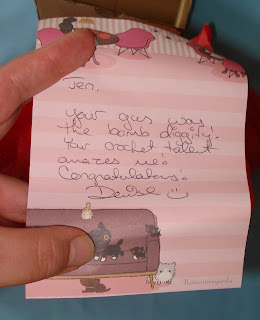 Jen,
your gus was
the bomb diggity!
Your crochet talent
amazes me!
Congratulations!
Denise